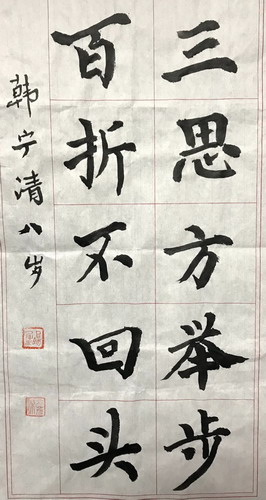 三思方举步
百折不回头
韩宁清八岁